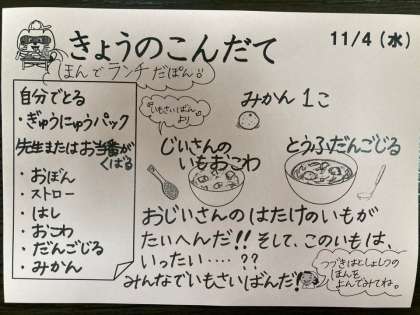 きょうのこんだて
11/4（水）
まんでランチだぽん!!
自分でとる
・ぎゅうにゅうパック
先生またはお当番が
くばる
・おぼん
・ストロー
・はし
・おこわ
・だんごじる
・みかん
「いもさいばん」
より
みかん１こ
じいさんの
いもおこわ
とうふだんごじる
おじいさんのはたけのいもが
たいへんだ!! そして、このいもは、
いったい‥‥??
みんなでいもさいばんだ!
つづきはとしょしつの
ほんを
よんでみてね。